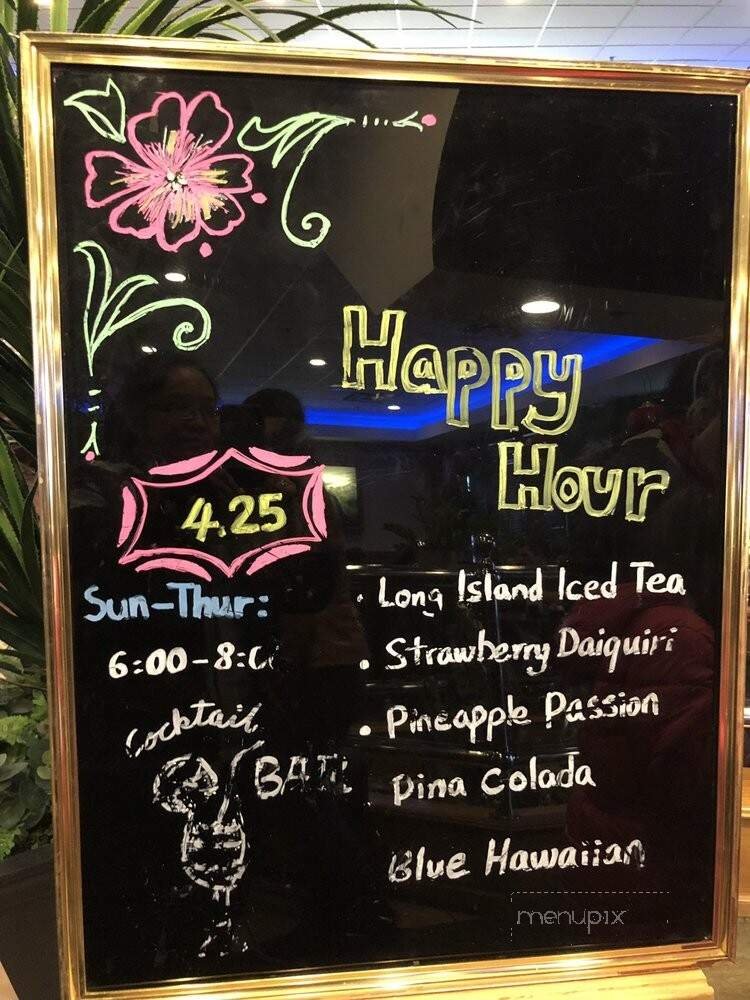 Happy
Hour
4.25
Sun-Thur:
6:00-8:
Cocktail
BAR
• Long Island Iced Tea
• Strawberry Daiquiri
• Pineapple Passion
Pina Colada
Blue Hawaiian
menupix